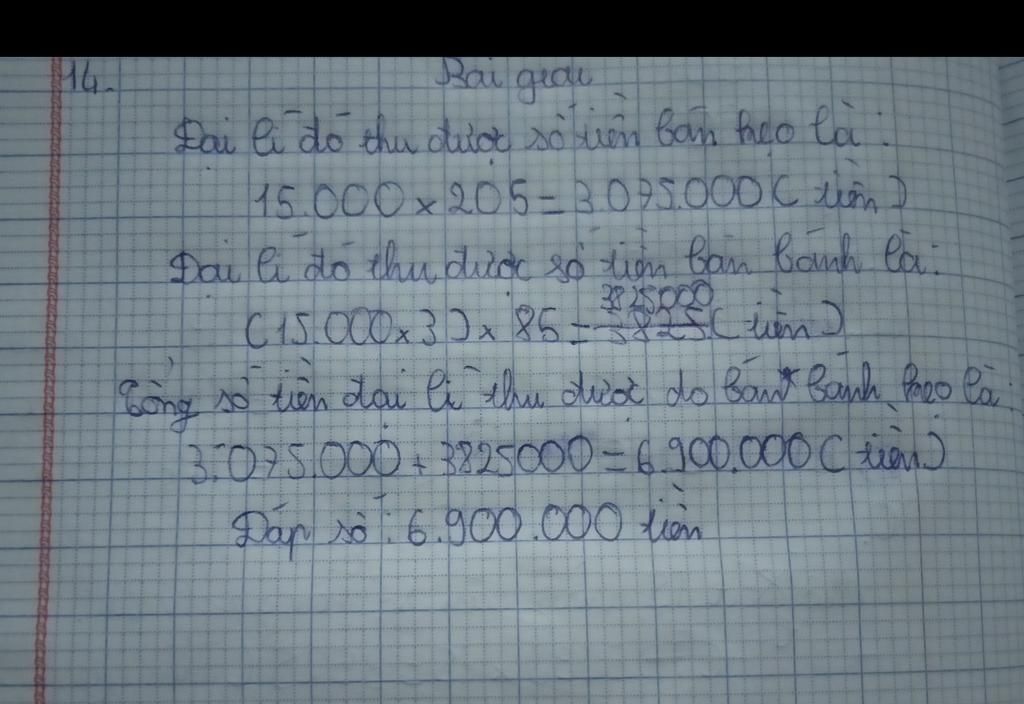 14. Bài giải
Đại lí đó thu được số tiền bán kẹo là:
15.000 × 205 = 3.075.000 ( tiền )
Đại lí đó thu được số tiền bán bánh là:
3825000
(15.000 × 3) × 85 = 3825 ( tiền )
Tổng số tiền đại lí thu được do bán bánh, kẹo là
3.075.000 + 3825000 = 6.900.000 ( tiền )
Đáp số : 6.900.000 tiền